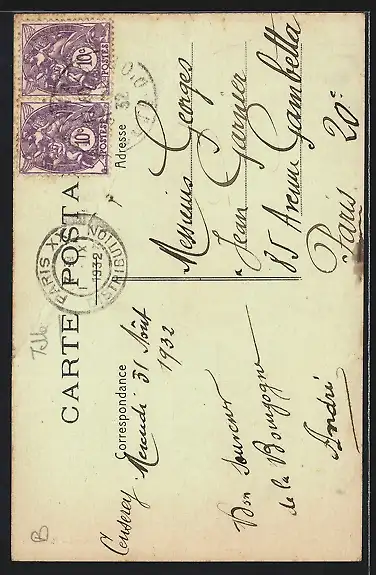 CARTE POSTA
Correspondance
Adresse
10c
POSTES
10c
POSTES
32
PARIS XX
1932
DISTRIBUTION
Censerey Mercredi 31 Août
1932
Bon Souvenir
de la Bourgogne
André
Messieurs Georges
Jean Garnier
85 Avenue Gambetta
Paris 20e
B